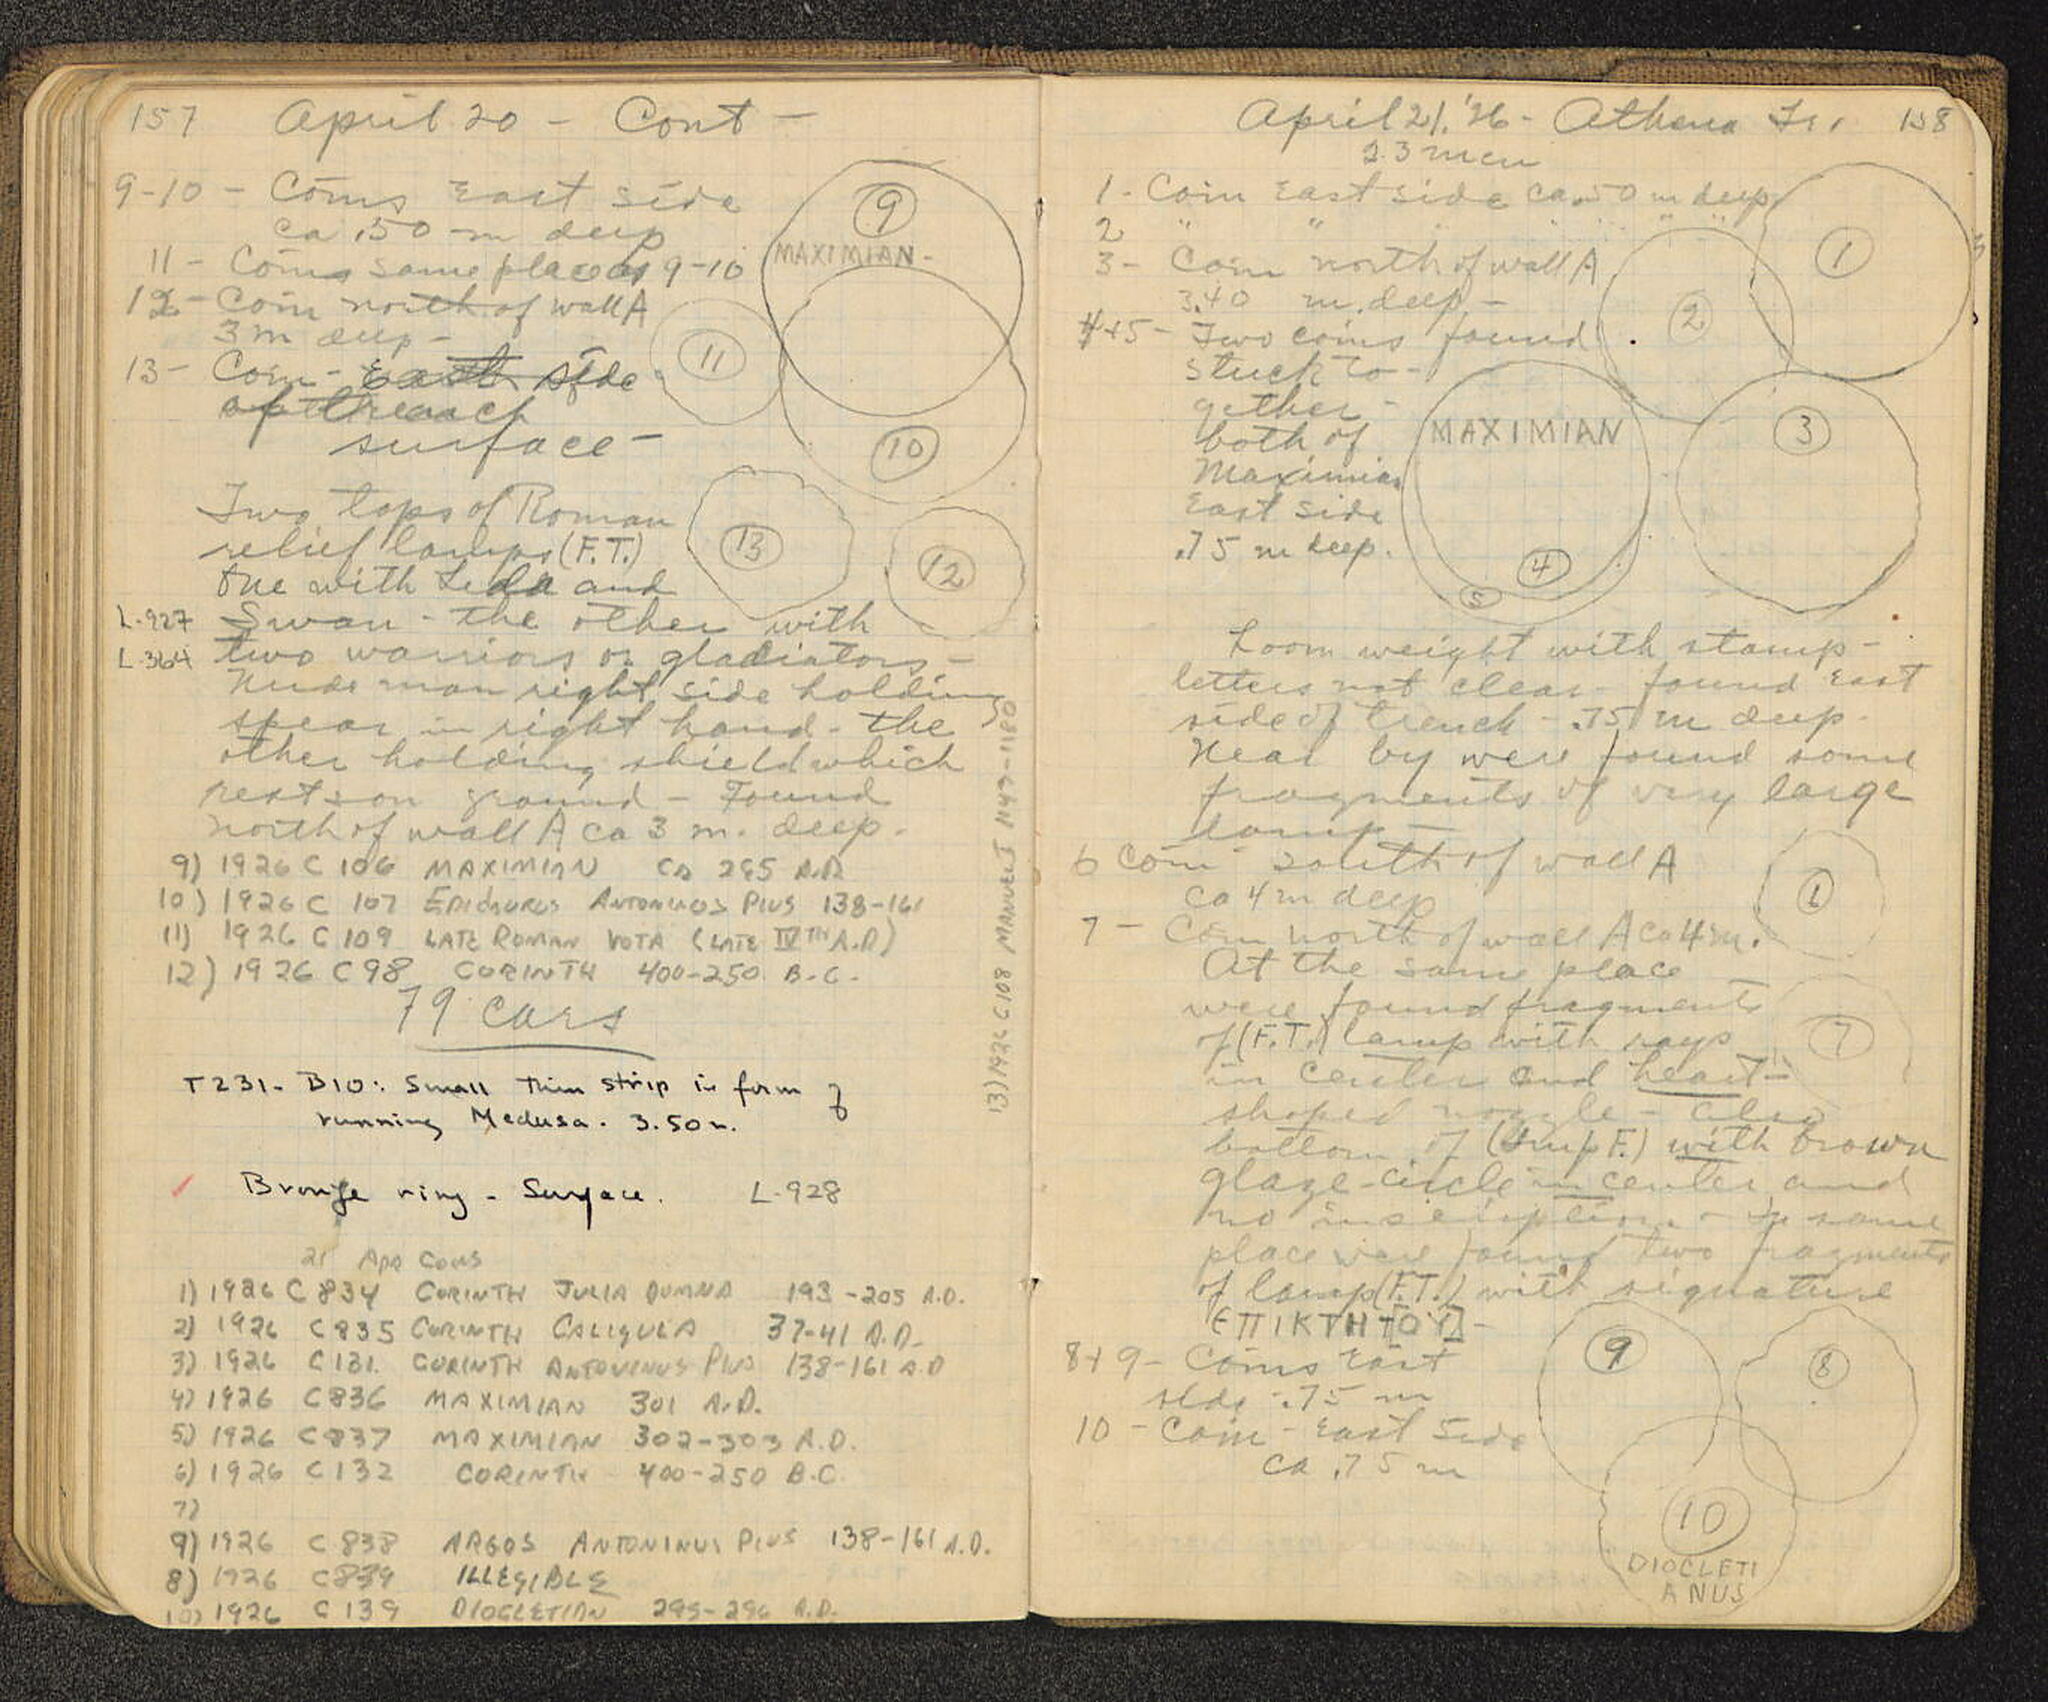 157 April 20 - Cont -
9-10 - Coins East side
ca .50 m deep
11 - Coins same place as 9-10
12 - Coin north of wall A
3 m deep -
13 - Coin - East side
of trench
surface -
9
MAXIMIAN -
11
10
13
12
Two tops of Roman
relief lamps (F.T.)
One with Leda and
L-927 Swan - the other with
L-364 two warriors or gladiators -
Nude man right side holding
spear in right hand - the
other holding shield which
rests on ground - Found
north of wall A ca 3 m. deep.
9) 1926 C 106 MAXIMIAN CA 295 A.D.
10) 1926 C 107 EPIDAURUS ANTONINUS PIUS 138-161
11) 1926 C 109 LATE ROMAN VOTA (LATE IVTH A.D)
12) 1926 C 98 CORINTH 400-250 B.C.
13) 1926 C108 MANUEL I 1143-1180
79 cars
T231 - B10: Small thin strip in form of
running Medusa. 3.50 m.
Bronze ring - Surface. L-928
21 Apr Coins
1) 1926 C 834 CORINTH JULIA DOMNA 193-205 A.D.
2) 1926 C835 CORINTH CALIGULA 37-41 A.D.
3) 1926 C131 CORINTH ANTONINUS PIUS 138-161 A.D
4) 1926 C836 MAXIMIAN 301 A.D.
5) 1926 C837 MAXIMIAN 302-303 A.D.
6) 1926 C132 CORINTH 400-250 B.C.
7)
9) 1926 C 838 ARGOS ANTONINUS PIUS 138-161 A.D.
8) 1926 C839 ILLEGIBLE
10) 1926 C 139 DIOCLETIAN 295-296 A.D.
April 21, '26 - Athena Tr. 158
23 men
1 - Coin East side ca .50 m deep
2 " " " " " "
3 - Coin north of wall A
3.40 m. deep -
4+5 - Two coins found
stuck to -
gether -
both of
Maximian
East side
.75 m deep.
1
2
3
MAXIMIAN
4
5
Loom weight with stamp -
letters not clear - found East
side of trench - .75 m deep.
Near by were found some
fragments of very large
lamp -
6 Coin south of wall A
ca 4 m deep
7 - Coin north of wall A ca 4 m.
At the same place
were found fragments
of (F.T.) lamp with rays
in center and heart -
shaped nozzle - also
bottom of (Imp F.) with brown
glaze - circle in center and
no inscription - In same
place were found two fragments
of lamp (F.T.) with signature
ΕΠΙΚΤΗ[ΟΥ] -
8+9 - Coins East
side - .75 m
10 - Coin - East Side
ca .75 m
6
7
9
8
10
DIOCLETI
ANUS